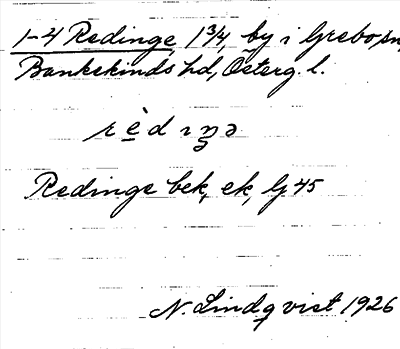 1-4 Redinge, 1 3/4, by i Grebo sn,
Bankekinds hd, Österg. l.
rèdıŋə
Redinge bek, ek, Lj 45
N. Lindqvist 1926